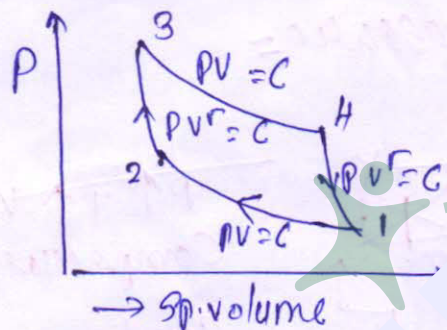 3
P
PV = C
4
PVʳ = C
2
PVʳ = C
PV = C
1
→ Sp. volume